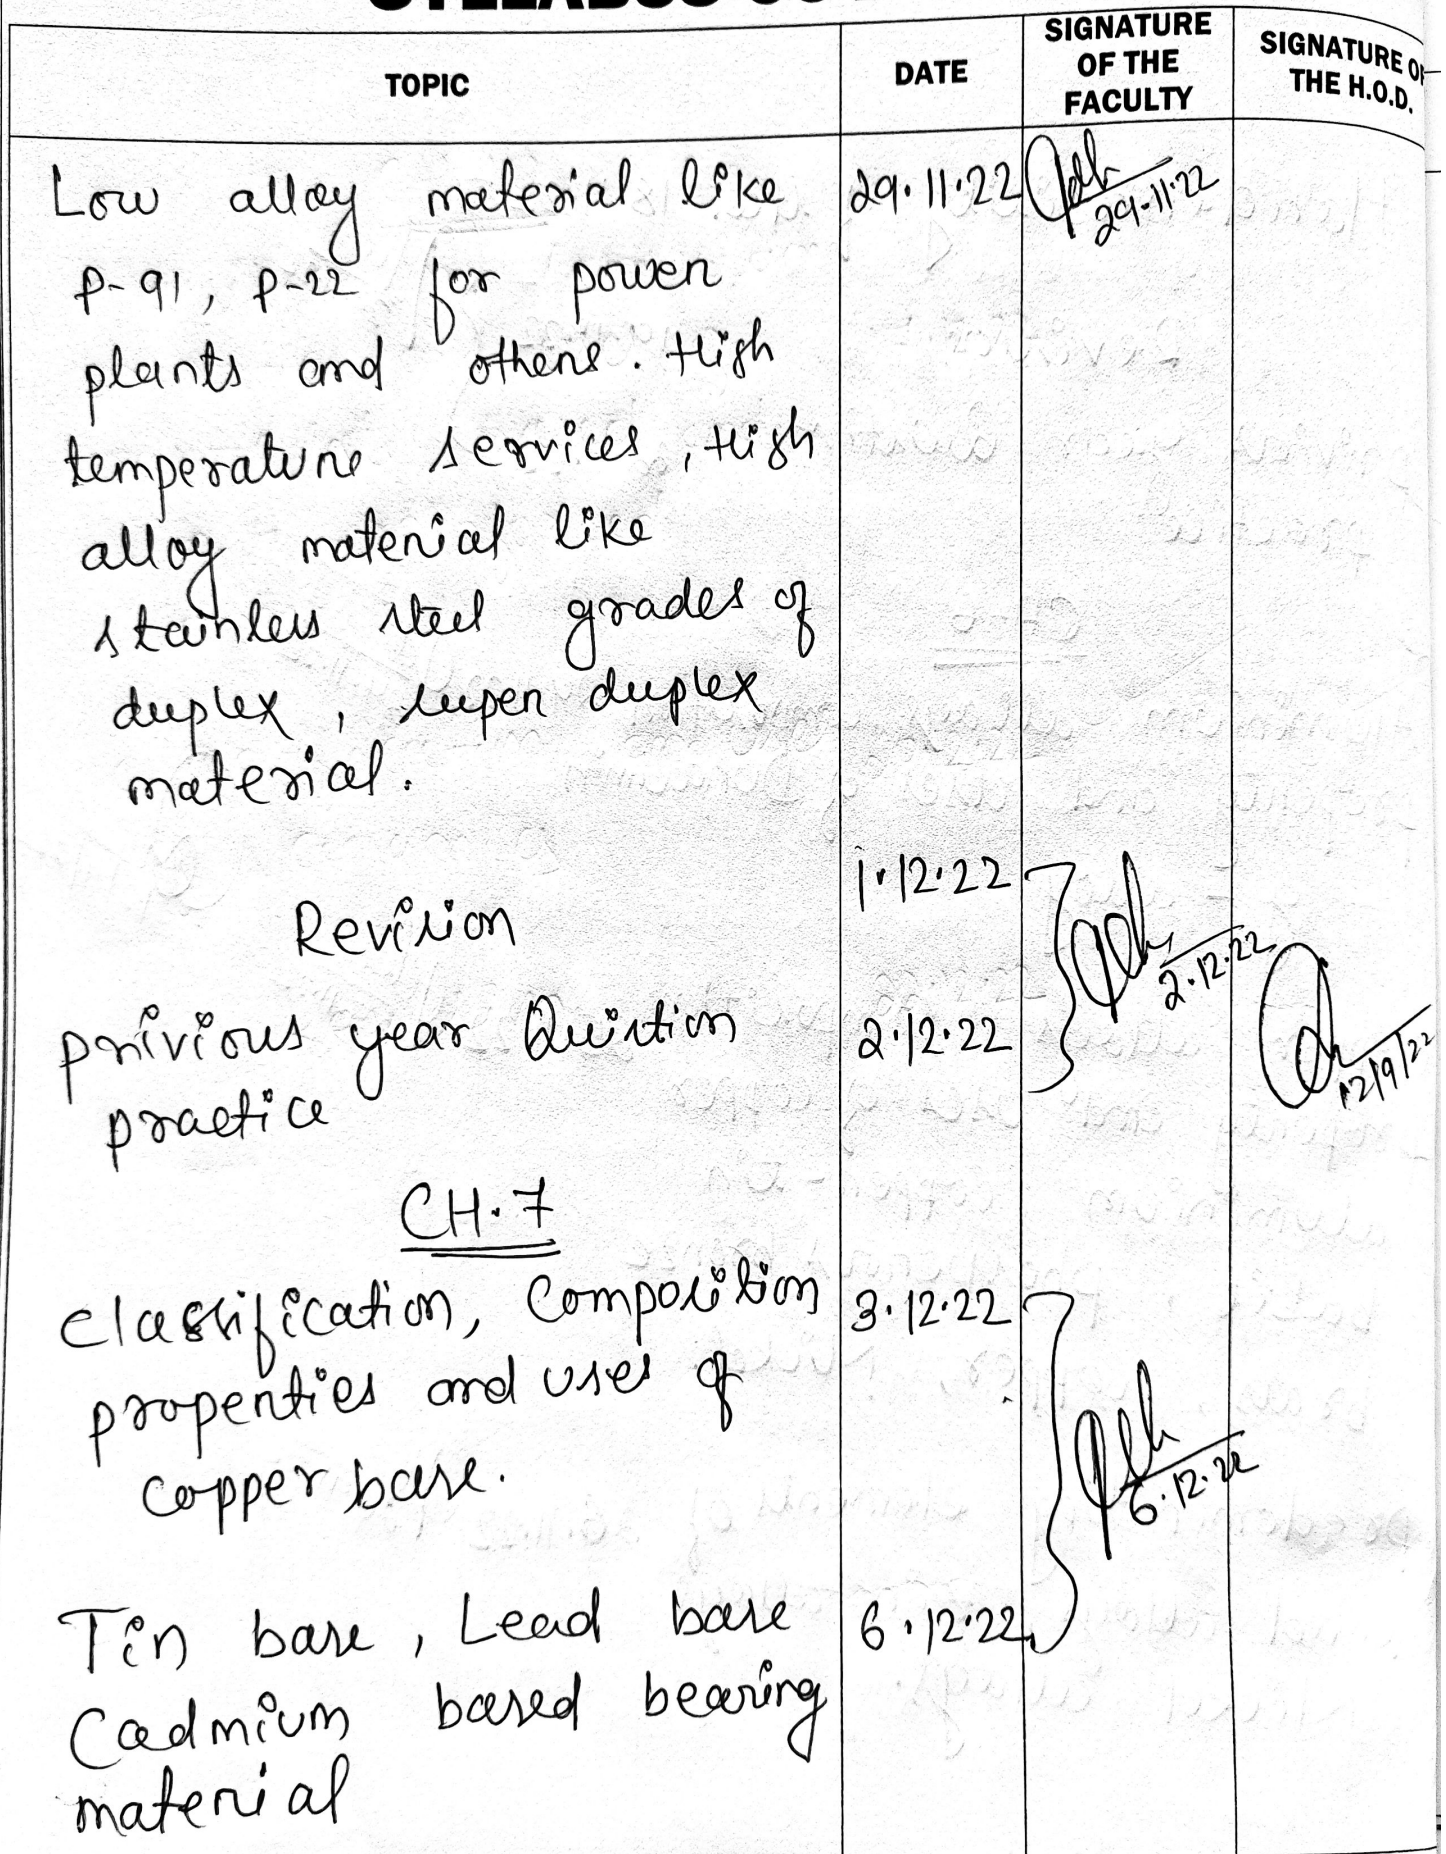 TOPIC
DATE
SIGNATURE
OF THE
FACULTY
SIGNATURE OF
THE H.O.D.
Low alloy material like 29.11.22
29.11.22
P-91, P-22 for power
plants and others. High
temperature services, High
alloy material like
stainless steel grades of
duplex, super duplex
material.
1.12.22
Revision
2.12.22
privious year Quistion 2.12.22
12/9/22
practice
CH.7
Classification, Composition 3.12.22
properties and uses of
copper base.
6.12.22
Tin base, Lead base 6.12.22
Cadmium based bearing
material